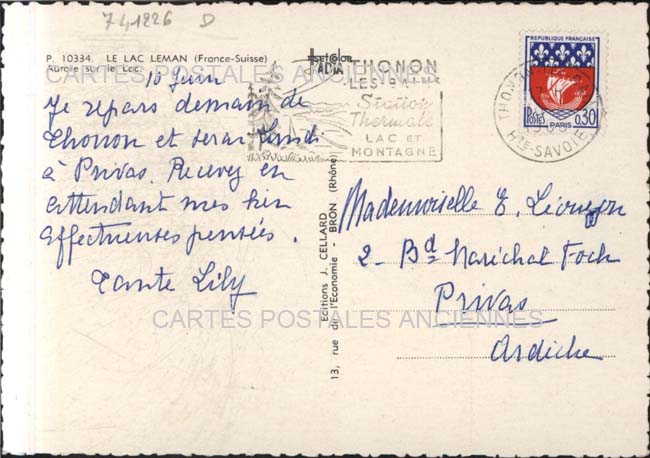 741226 D
P. 10334. LE LAC LEMAN (France-Suisse)
Aurore sur le Lac.
CARTES POSTALES ANCIENNES
10 Juin
Je repars demain de
Thonon et serai lundi
à Privas. Recevez en
attendant mes bien
affectueuses pensées.
Tante Lily
Editions J. CELLARD
13, rue de l'Economie BRON (Rhône)
THONON
LES BAINS
Station
Thermale
LAC ET
MONTAGNE
REPUBLIQUE FRANÇAISE
POSTES 0,30
PARIS
THONON
Hte-SAVOIE
Mademoiselle E.
2 - Bd Maréchal Foch
Privas
Ardèche
CARTES POSTALES ANCIENNES